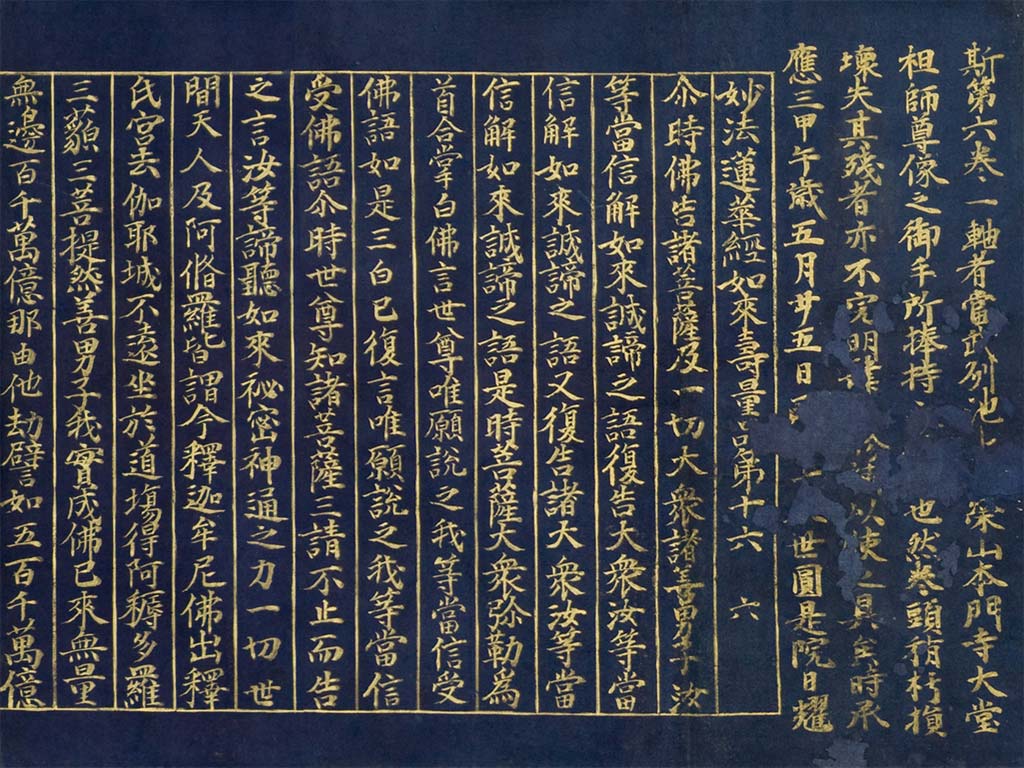 斯第六卷一軸者當武列池上 梁山本門寺大堂
祖師尊像之御手所捧持 也然卷頭稍朽損
壞失其殘者亦不完明 以使之具 時承
應三甲午歲五月廿五日 世圓是院日耀
妙法蓮華經如來壽量品第十六 六
尒時佛告諸菩薩及一切大衆諸善男子汝
等當信解如來誠諦之語復告大衆汝等當
信解如來誠諦之語又復告諸大衆汝等當
信解如來誠諦之語是時菩薩大衆弥勒爲
首合掌白佛言世尊唯願說之我等當信受
佛語如是三白已復言唯願說之我等當信
受佛語尒時世尊知諸菩薩三請不止而告
之言汝等諦聽如來祕密神通之力一切世
間天人及阿脩羅皆謂今釋迦牟尼佛出釋
氏宮去伽耶城不遠坐於道場得阿耨多羅
三藐三菩提然善男子我實成佛已來無量
無邊百千萬億那由他劫譬如五百千萬億